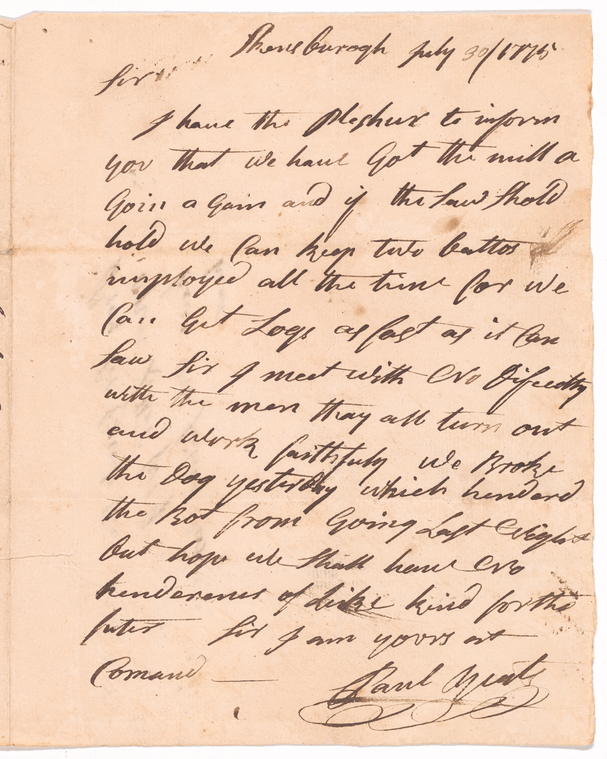 Skensburogh July 30/1775
Sir
I have the Pleshur to inform
you that we have Got the mill a
Goin a Gain and if the Saw Shold
hold we Can keep two battos
imployed all the time for we
Can Get Logs as fast as it Can
Saw Sir I meet with No Difecolty
with the men thay all turn out
and work faithfuly we Broke
the Dog yesterday which henderd
the Bot from Going Last Night
but hope we Shall have No
henderences of Like kind for the
futer Sir I am yours at
Comand
Paul Yeats